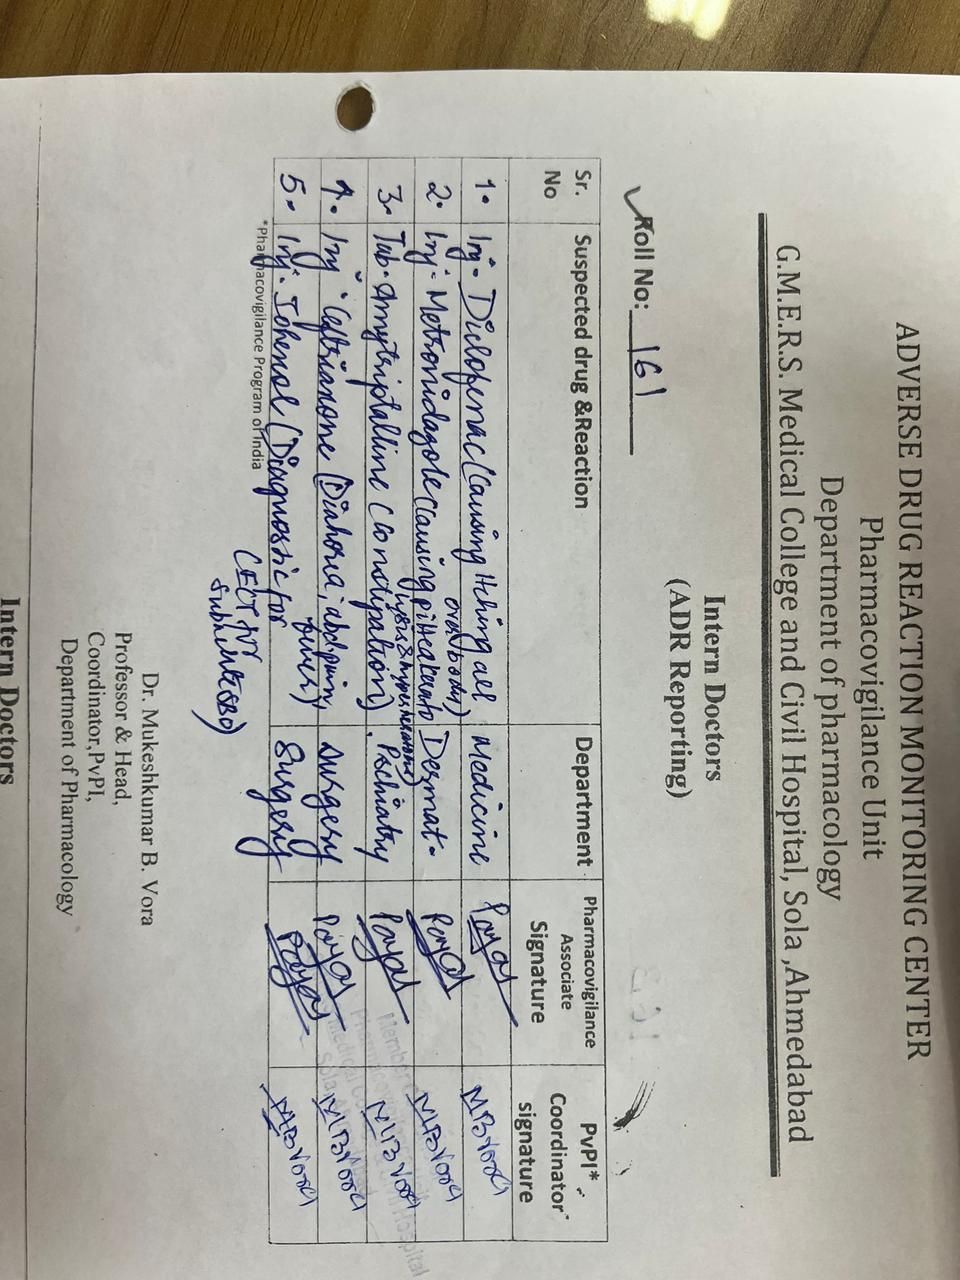 ADVERSE DRUG REACTION MONITORING CENTER
Pharmacovigilance Unit
Department of pharmacology
G.M.E.R.S. Medical College and Civil Hospital, Sola ,Ahmedabad
Intern Doctors
(ADR Reporting)
Roll No: 161
Sr. No
Suspected drug &Reaction
Department
Pharmacovigilance Associate Signature
PvPI* Coordinator signature
1. Inj. Diclofenac (Causing Itching all over body) Medicine Payal MBVora
2. Inj. Metronidazole (causing Dermat. Payal MBVora
3. Tab. Amytriptalline (constipation) Pschiatry Payal MBVora
4. Inj. Ceftriaxone (Diahoria, abd. pain, fever) Surgery Payal MBVora
5. Inj. Iohenol (Diagnostic for Surgery Payal MBVora
(CECT
*Pharmacovigilance Program of India
Dr. Mukeshkumar B. Vora
Professor & Head,
Coordinator,PvPI,
Department of Pharmacology
Intern Doctors